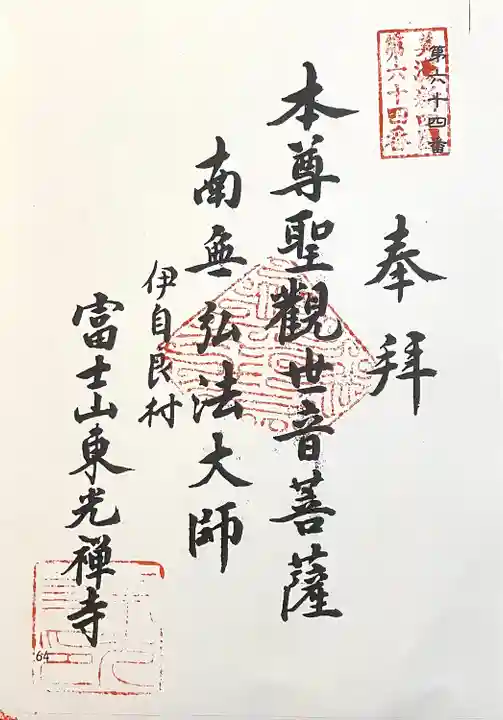 第六十四番
第六十四番
奉拝
本尊聖觀世音菩薩
南無弘法大師
伊自良村
富士山東光禅寺
64